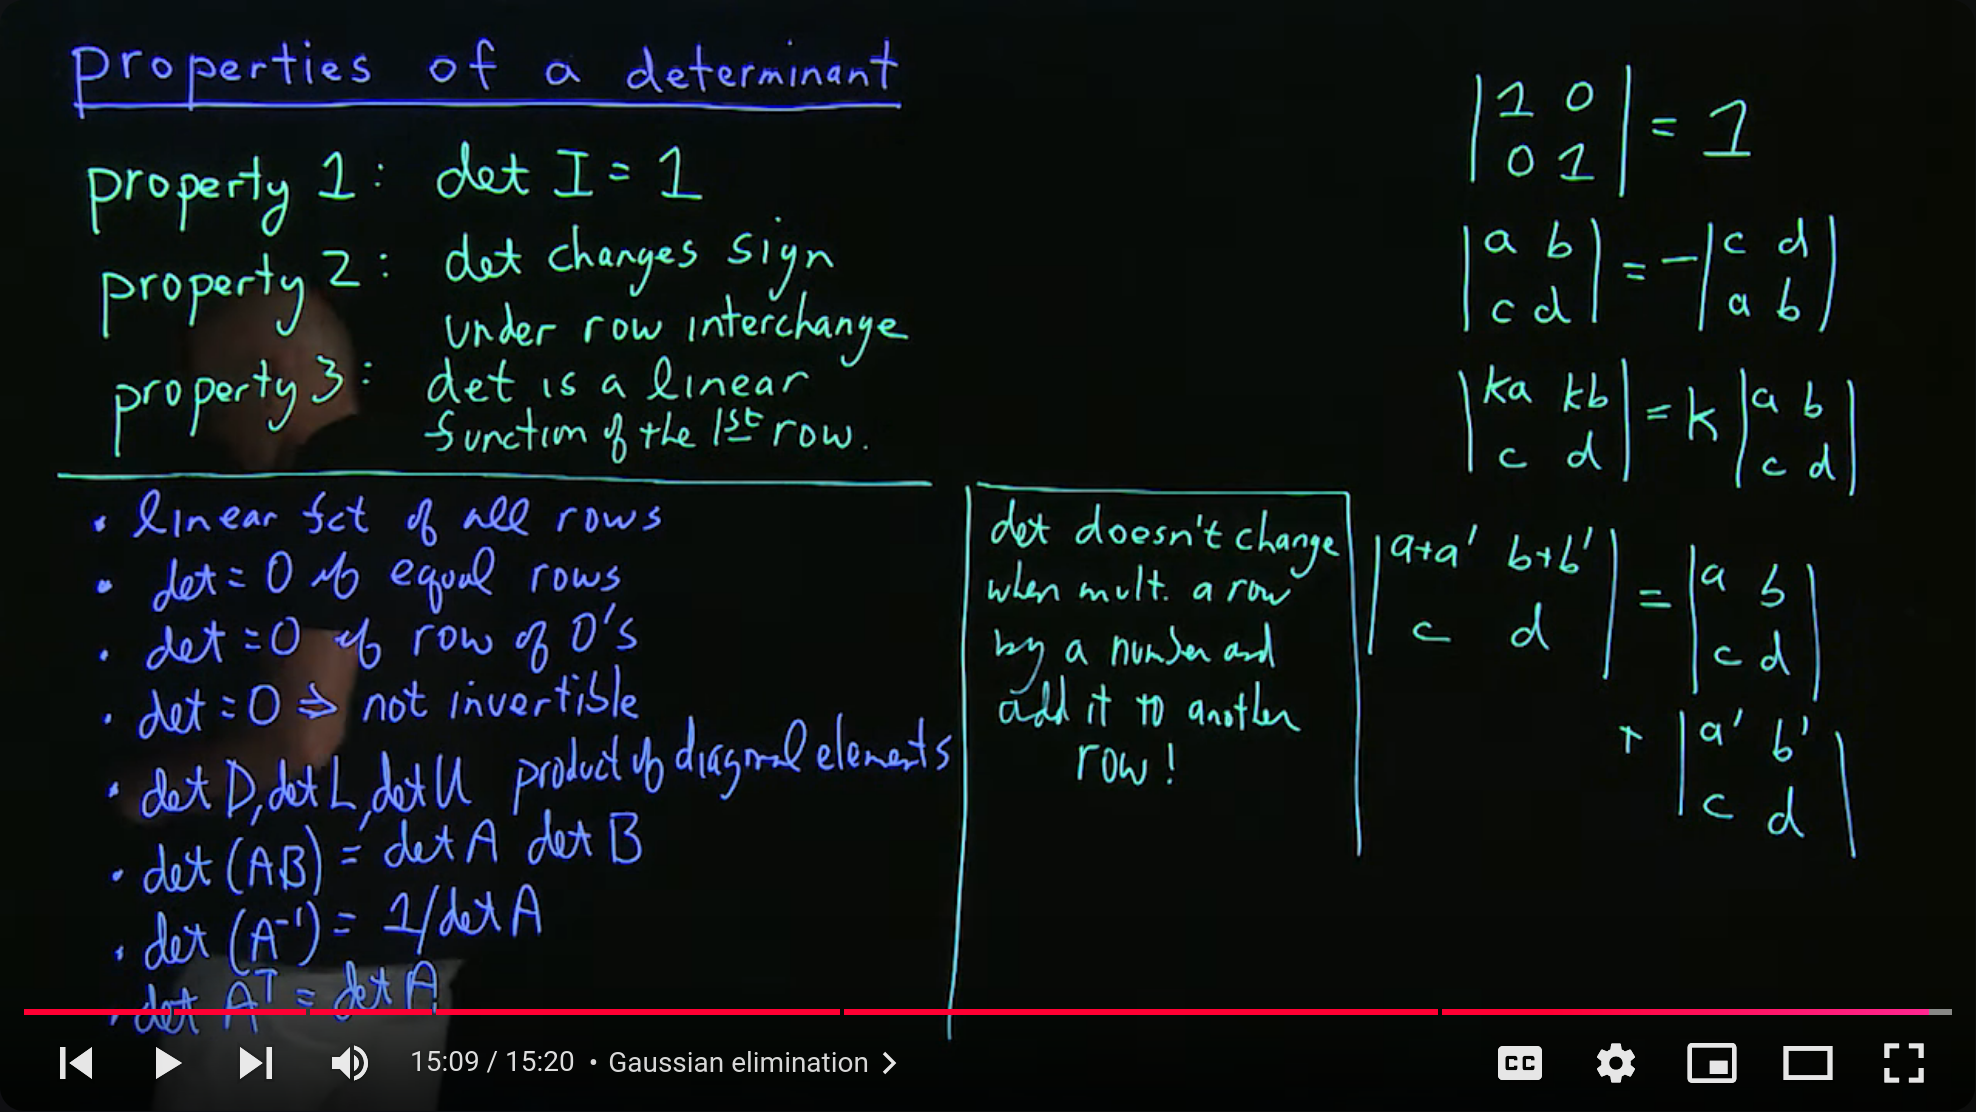 properties of a determinant
property 1: det I = 1
property 2: det changes sign
under row interchange
property 3: det is a linear
function of the 1st row.
• linear fct of all rows
• det = 0 if equal rows
• det = 0 if row of 0's
• det = 0 ⇒ not invertible
• det D, det L, det U product of diagonal elements
• det (AB) = det A det B
• det (A⁻¹) = 1/det A
• det Aᵀ = det A
det doesn't change
when mult. a row
by a number and
add it to another
row!
|1 0|
|0 1| = 1
|a b| = - |c d|
|c d| |a b|
|ka kb| = k |a b|
|c d| |c d|
|a+a' b+b'| = |a b|
|c d| |c d|
+ |a' b'|
|c d|
15:09 / 15:20 • Gaussian elimination >
CC